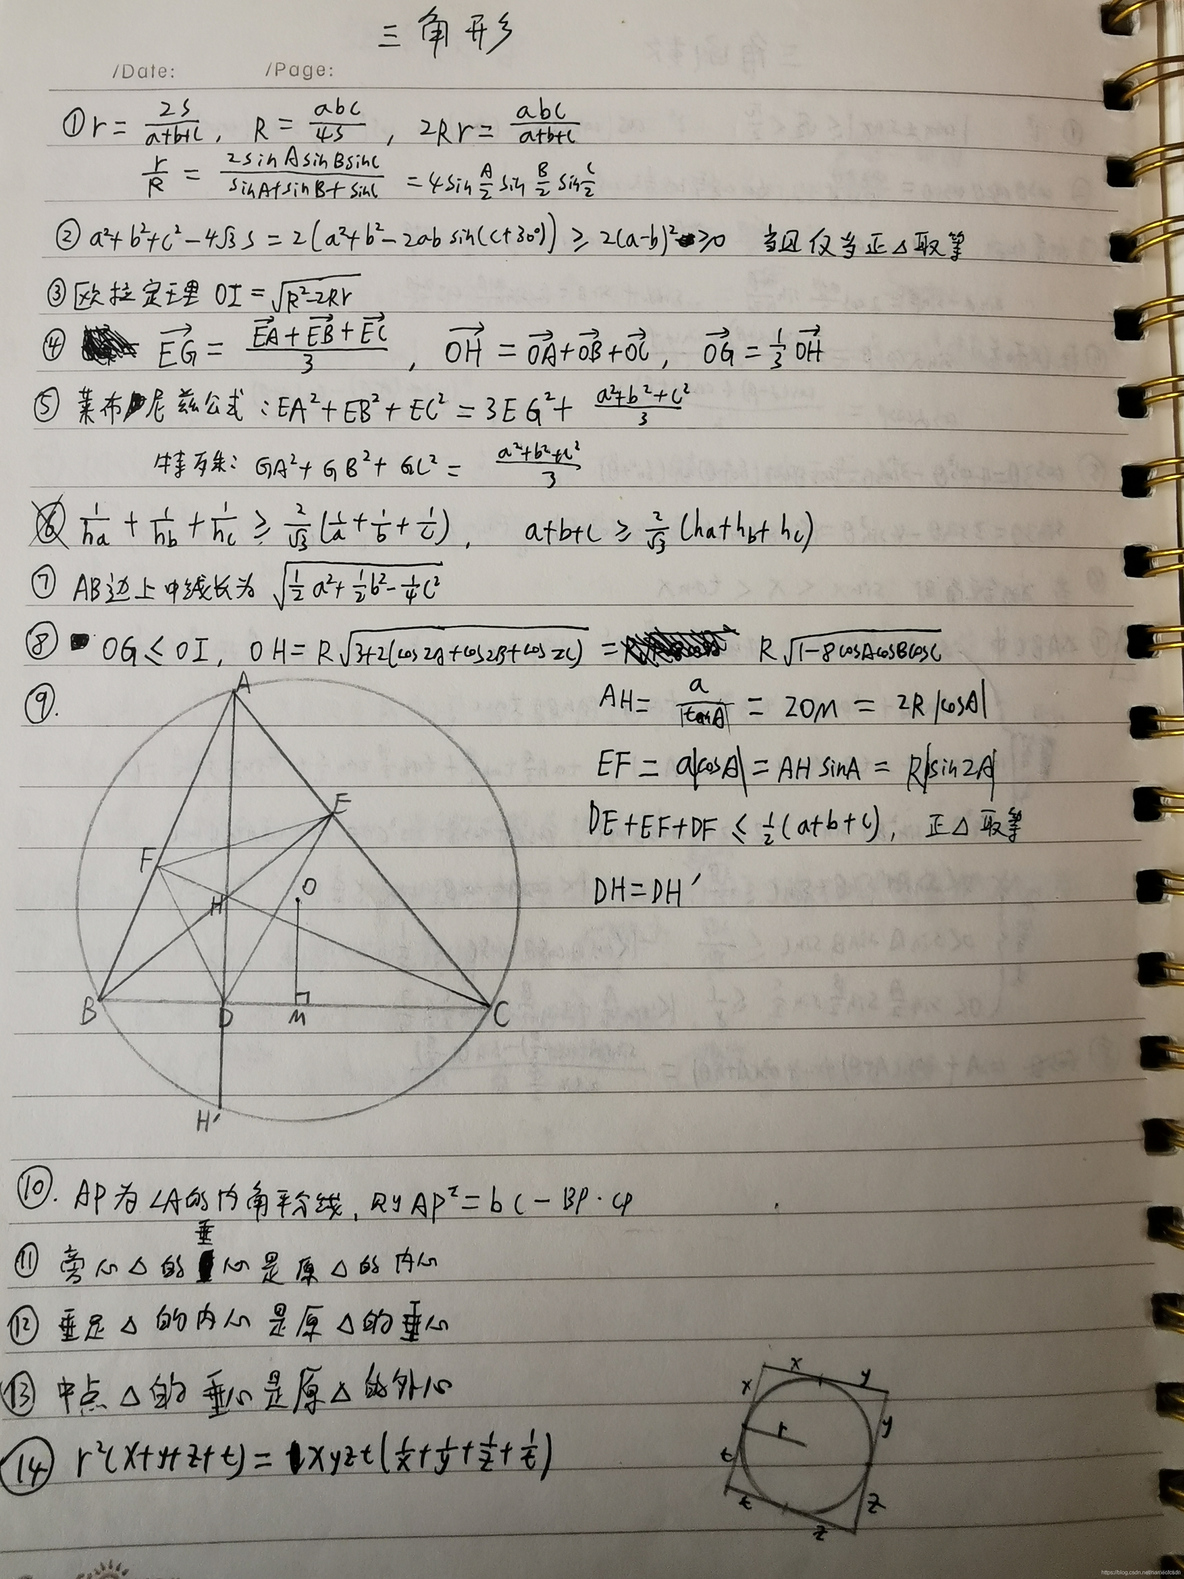 三角形
/Date: /Page:
① r = 2S/(a+b+c), R = abc/4S, 2Rr = abc/(a+b+c)
r/R = 2sinAsinBsinC/(sinA+sinB+sinC) = 4sin A/2 sin B/2 sin C/2
② a²+b²+c²-4√3 S = 2(a²+b²-2ab sin(C+30°)) ≥ 2(a-b)² ≥0 当且仅当正△取等
③ 欧拉定理 OI = √(R²-2Rr)
④ EG→ = (EA→+EB→+EC→)/3, OH→ = OA→+OB→+OC→, OG→ = 1/3 OH→
⑤ 莱布尼兹公式: EA²+EB²+EC² = 3EG² + (a²+b²+c²)/3
特殊: GA²+GB²+GC² = (a²+b²+c²)/3
⑥ 1/ha + 1/hb + 1/hc ≥ 2/√3 (1/a+1/b+1/c), a+b+c ≥ 2/√3 (ha+hb+hc)
⑦ AB边上中线长为 √(1/2 a²+1/2 b²-1/4 c²)
⑧ OG ≤ OI, OH = R√(3+2(cos2A+cos2B+cos2C)) = R√(1-8cosAcosBcosC)
⑨.
AH = a/|tanA| = 2OM = 2R|cosA|
EF = a|cosA| = AH sinA = R|sin2A|
DE+EF+DF ≤ 1/2(a+b+c), 正△取等
DH = DH′
A
E
F
O
H
B
D
M
C
H′
⑩. AP为∠A的内角平分线, 则AP² = bc - BP·CP
⑪ 旁心△的垂心是原△的内心
⑫ 垂足△的内心是原△的垂心
⑬ 中点△的垂心是原△的外心
⑭ r²(x+y+z+t) = xyzt(1/x+1/y+1/z+1/t)
x
y
x
y
r
t
z
t
z